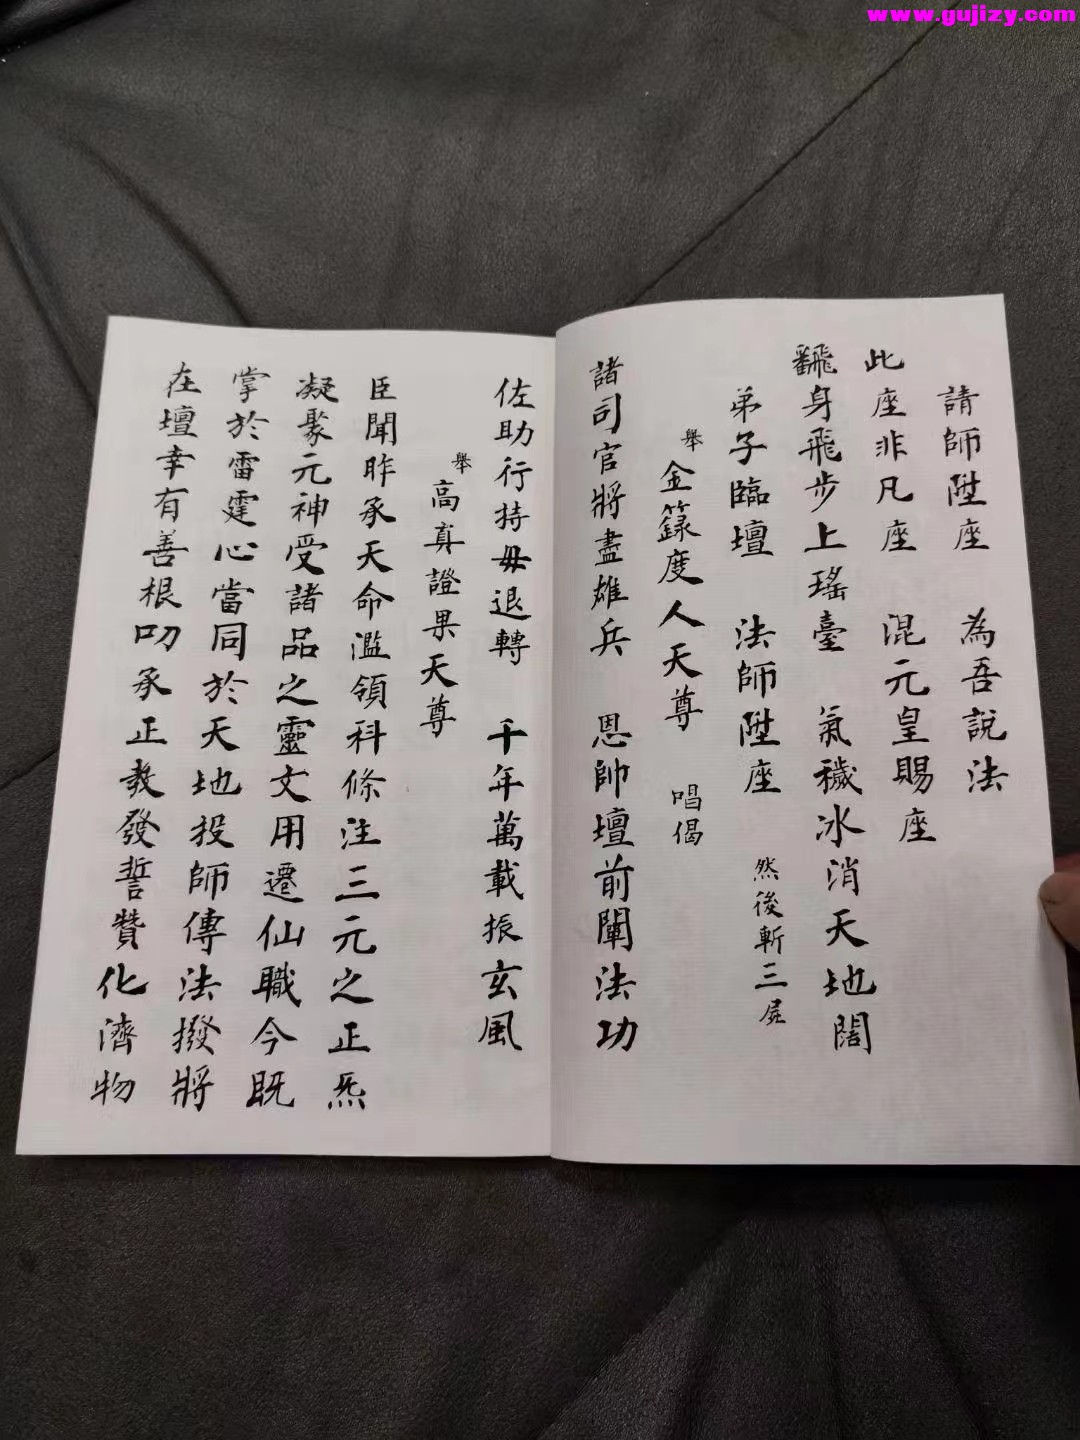 www.gujizy.com
請師陞座　為吾說法
此座非凡座　混元皇賜座
翻身飛步上瑤臺　氣穢冰消天地闊
弟子臨壇　法師陞座　然後斬三屍
舉　金籙度人天尊　唱偈
諸司官將盡雄兵　恩帥壇前闡法功
佐助行持毋退轉　千年萬載振玄風
舉　高真證果天尊
臣聞昨承天命濫領科條注三元之正炁
凝聚元神受諸品之靈文用遷仙職今既
掌於雷霆心當同於天地投師傳法撥將
在壇幸有善根叨承正教發誓贊化濟物